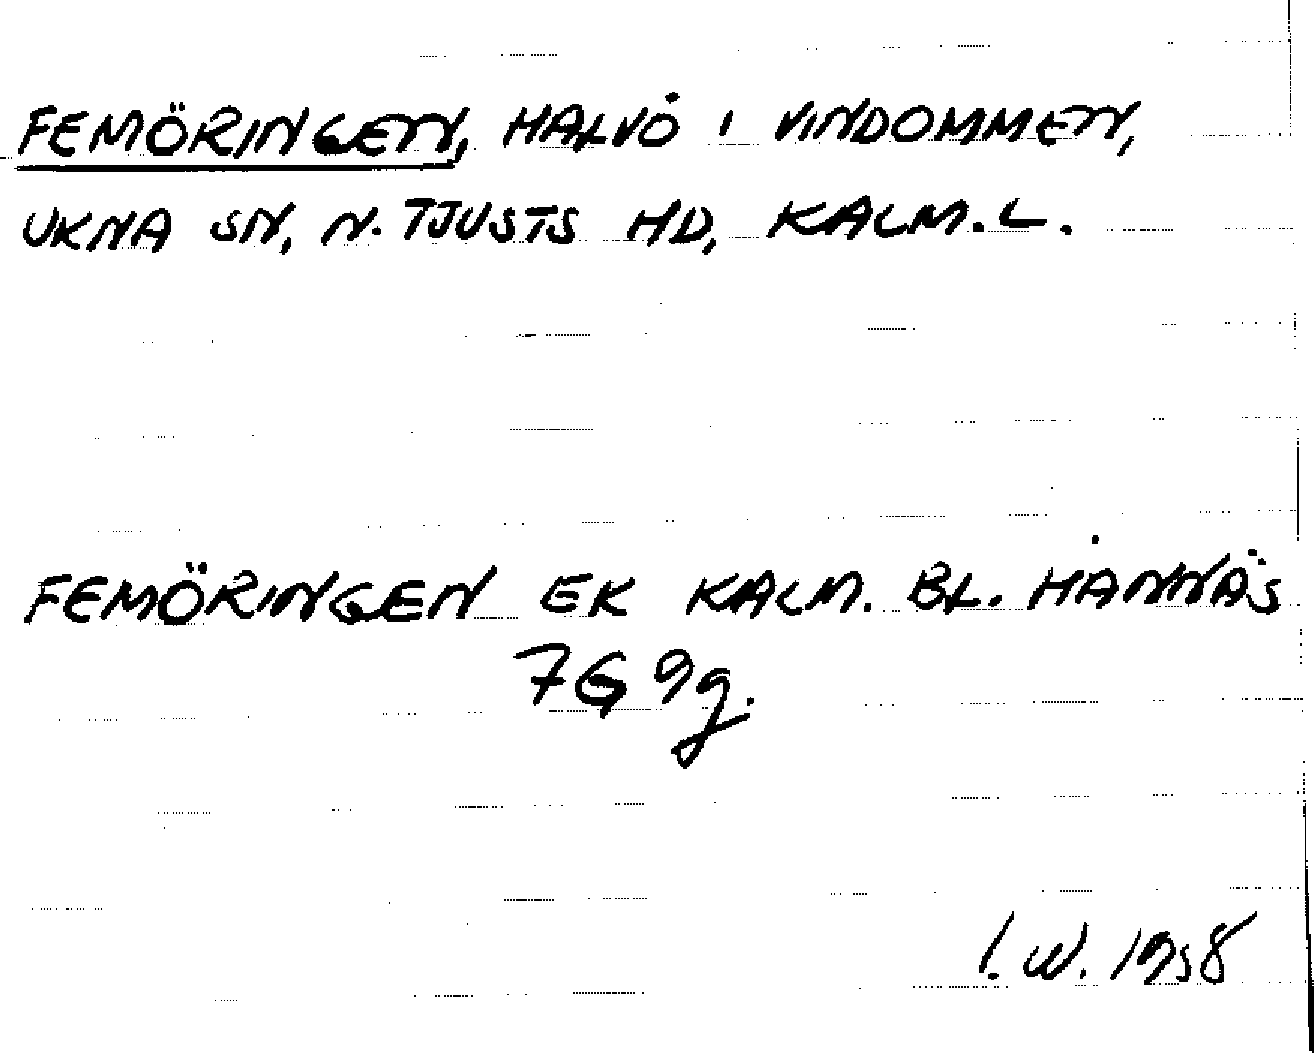 FEMÖRINGEN, HALVÖ I VINDOMMEN,
UKNA SN, N. TJUSTS HD, KALM. L.
FEMÖRINGEN EK KALM. BL. HÅNNÄS
7G 9g.
I. W. 1958